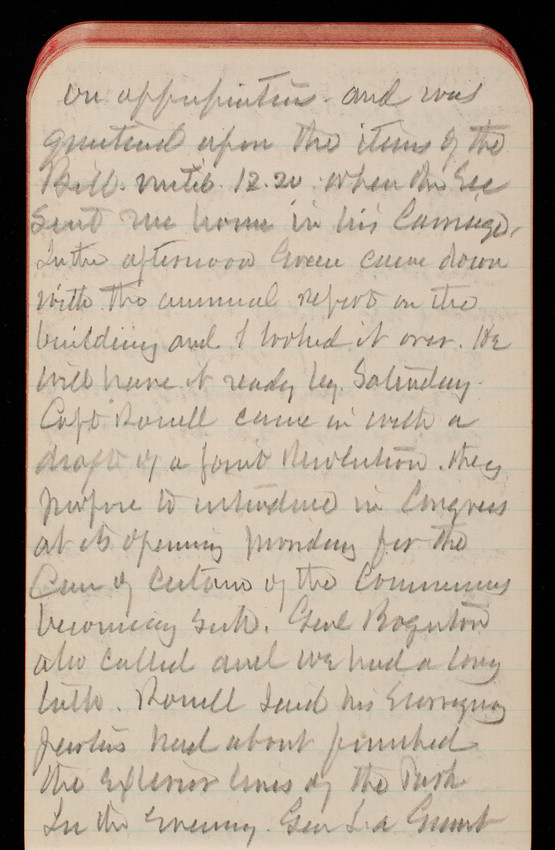 on appropriations and was
questioned upon the items of the
Bill until 12.20 when the Sec
Sent me home in his Carriage.
In the afternoon Green came down
with the annual report on the
building and I looked it over. He
will have it ready by Saturday.
Capt Rowell came in with a
draft of a joint Resolution they
purpose to introduce in Congress
at its opening Monday for the
Care of certain of the Commrs
becoming sick. Genl Boynton
also called and we had a long
talk. Rowell said his Surveying
parties had about finished
the exterior lines of the Park
In the Evening. Gen